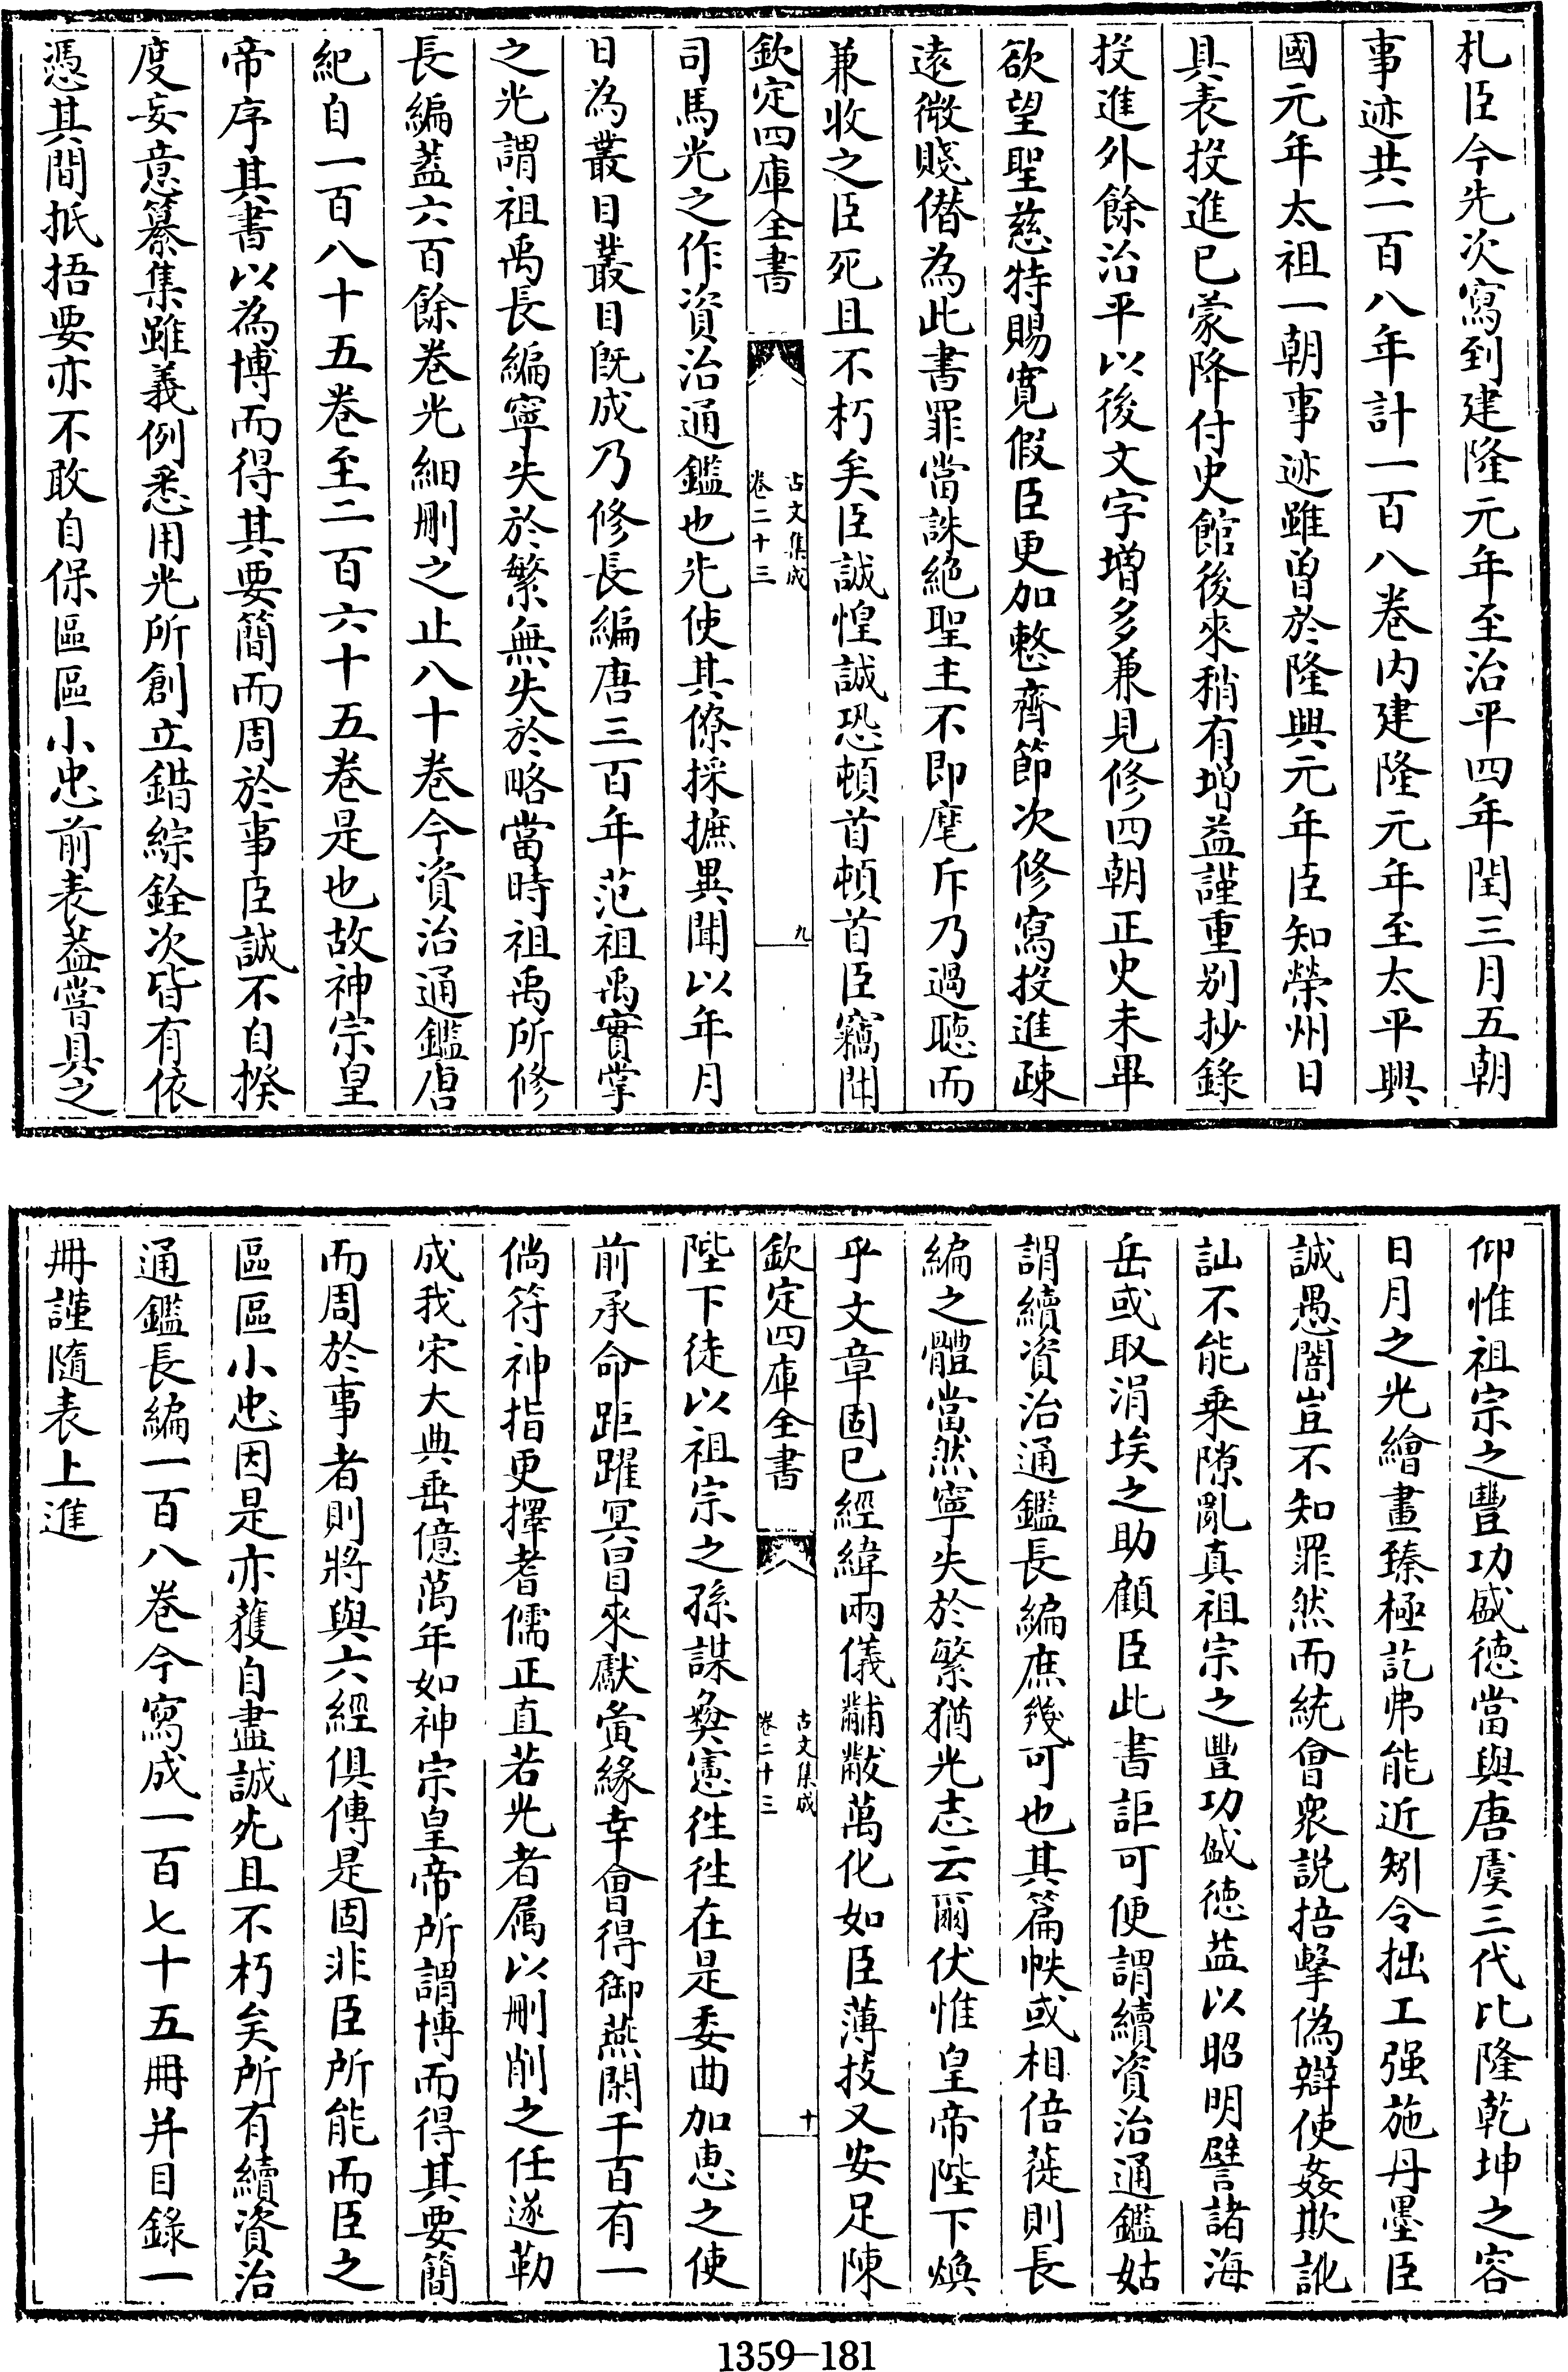 札臣今先次寫到建隆元年至治平四年閏三月五朝
事迹共一百八年計一百八卷内建隆元年至太平興
國元年太祖一朝事迹雖曽於隆興元年臣知榮州日
具表投進已蒙降付史館後來稍有增益謹重别抄錄
投進外餘治平以後文字增多兼見修四朝正史未畢
欲望聖慈特賜寛假臣更加整齊節次修寫投進疎
遠微賤僣為此書罪當誅絶聖主不即麾斥乃過聽而
兼收之臣死且不朽矣臣誠惶誠恐頓首頓首臣竊聞
欽定四庫全書
古文集成
卷二十三
九
司馬光之作資治通鑑也先使其僚採摭異聞以年月
日為叢目叢目既成乃修長編唐三百年范祖禹實掌
之光謂祖禹長編寧失於繁無失於略當時祖禹所修
長編葢六百餘卷光細刪之止八十卷今資治通鑑唐
紀自一百八十五卷至二百六十五卷是也故神宗皇
帝序其書以為博而得其要簡而周於事臣誠不自揆
度妄意纂集雖義例悉用光所創立錯綜銓次皆有依
憑其間抵捂要亦不敢自保區區小忠前表葢嘗具之
仰惟祖宗之豐功盛徳當與唐虞三代比隆乾坤之容
日月之光繪畫臻極訖弗能近矧令拙工强施丹墨臣
誠愚闇豈不知罪然而統會衆説掊擊偽辯使姦欺訛
訕不能乗隙亂真祖宗之豐功盛徳益以昭明譬諸海
岳或取涓埃之助顧臣此書詎可便謂續資治通鑑姑
謂續資治通鑑長編庶幾可也其篇帙或相倍蓰則長
編之體當然寧失於繁猶光志云爾伏惟皇帝陛下煥
乎文章固已經緯兩儀黼黻萬化如臣薄技又安足陳
欽定四庫全書
古文集成
卷二十三
十
陛下徒以祖宗之孫謀彝憲往往在是委曲加惠之使
前承命距躍冥冒來獻夤縁幸會得御燕閑千百有一
倘符神指更擇耆儒正直若光者属以刪削之任遂勒
成我宋大典垂億萬年如神宗皇帝所謂博而得其要簡
而周於事者則將與六經俱傳是固非臣所能而臣之
區區小忠因是亦獲自盡誠死且不朽矣所有續資治
通鑑長編一百八卷今寫成一百七十五冊并目錄一
冊謹隨表上進
1359-181